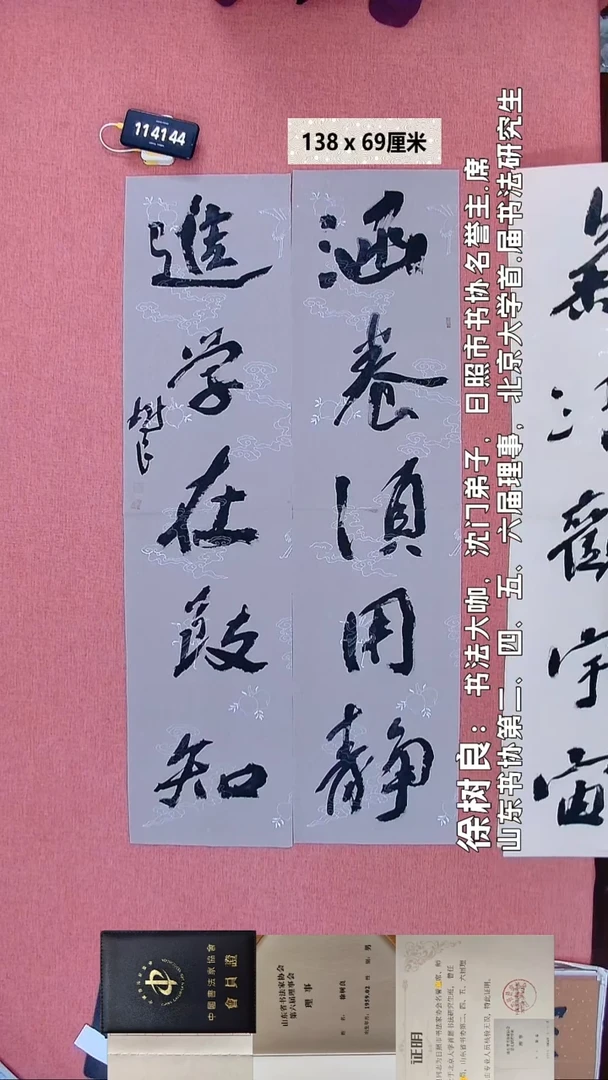 114144
138 x 69厘米
涵養須用静
進学在致知
樹良
觀宇宙
徐树良：书法大咖，沈门弟子，日照市书协名誉主.席
山东书协第二、四、五、六届理事，北京大学首.届书法研究生
中國書法家協會
會員證
山东省书法家协会
第六届理事会
理事
徐树良
男
证明